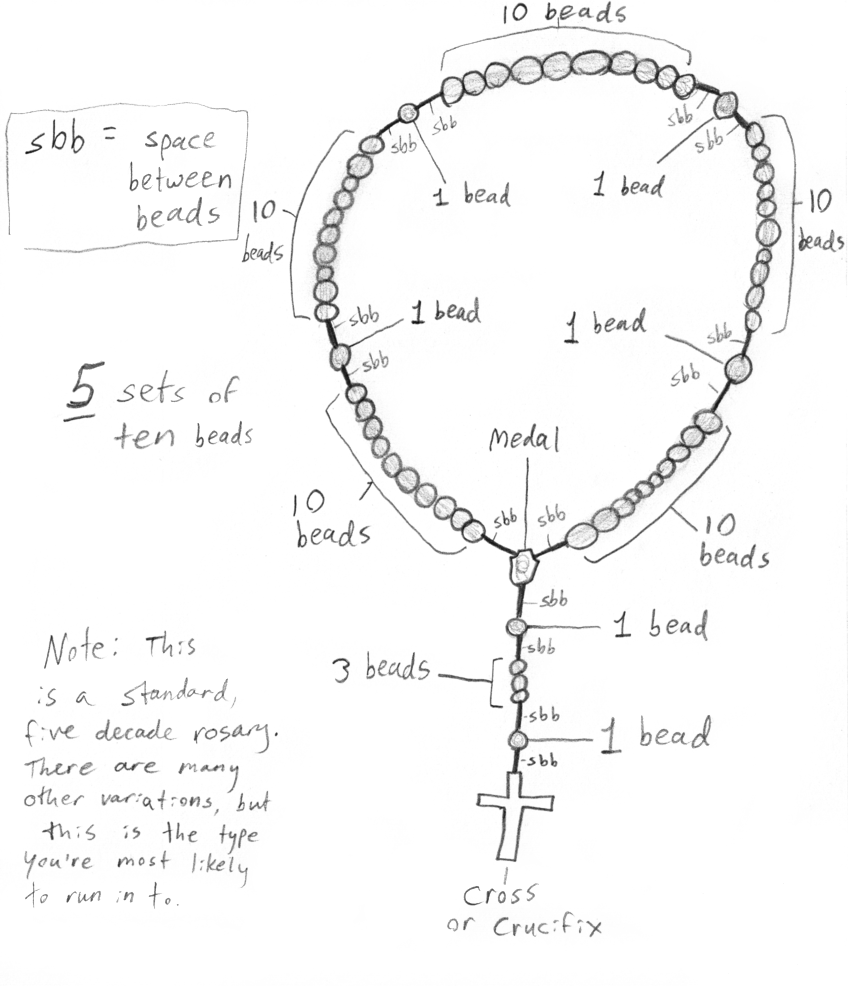 10 beads
sbb = space
between
beads
sbb
sbb
sbb
sbb
1 bead
1 bead
10
beads
10
beads
sbb
1 bead
sbb
1 bead
sbb
sbb
5 sets of
ten beads
Medal
10
beads
sbb
sbb
10
beads
sbb
1 bead
sbb
3 beads
sbb
1 bead
sbb
Note: This
is a standard,
five decade rosary.
There are many
other variations, but
this is the type
you're most likely
to run in to.
Cross
or Crucifix